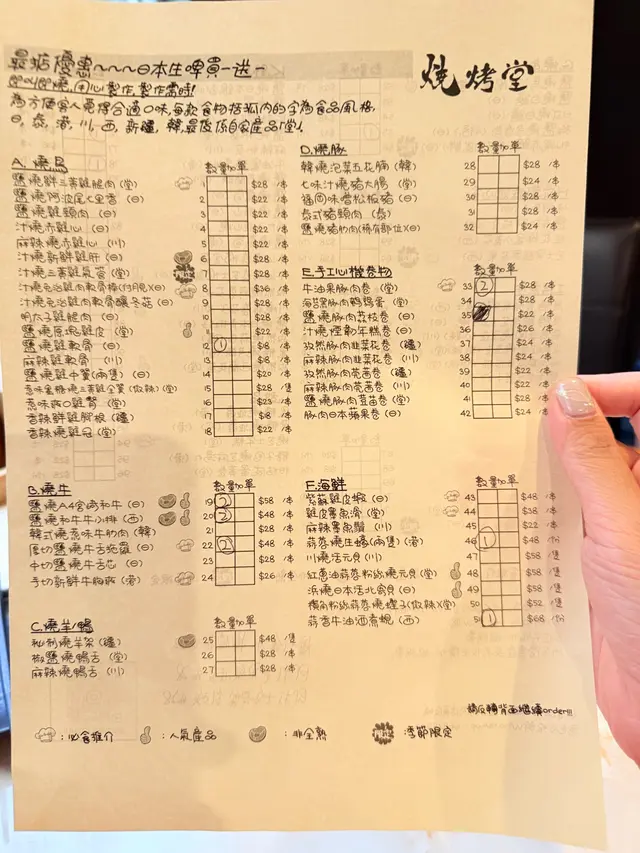 最抵優惠~~~日本生啤買一送一
燒烤堂
即叫即燒,用心製作,製作需時!
為方便客人覓得合適口味,每款食物括弧內的字為食品風格,
日,泰,港,川,西,新疆,韓,最後係自家產品「堂」.
A. 燒鳥
數量加單
鹽燒鮮三黃雞腿肉(堂) 1 $28 /本
鹽燒阿波尾七里香 (日) 2 $22 /本
鹽燒雞頸肉 (日) 3 $22 /本
汁燒赤雞心 (日) 4 $22 /本
麻辣燒赤雞心 (川) 5 $22 /本
汁燒新鮮雞肝 (日) 6 $28 /本
汁燒三黃雞氣管 (堂) 7 $28 /本
汁燒免治雞肉軟骨棒(付月見)(日) 8 $36 /本
汁燒免治雞肉軟骨釀冬菇 (日) 9 $28 /本
明太子雞腿肉 (日) 10 $28 /本
鹽燒原塊雞皮 (堂) 11 $22 /本
鹽燒雞軟骨 (日) 12 1 $18 /本
麻辣雞軟骨 (川) 13 $18 /本
鹽燒雞中翼(兩隻) (日) 14 $20 /本
蜜糖燒三黃雞全翼(做辣) (堂) 15 $28 /隻
雞腎 (堂) 16 $23 /本
香辣鮮雞腳根 (疆) 17 $18 /本
香辣燒雞冠 (堂) 18 $22 /本
B. 燒牛
數量加單
鹽燒A4宮崎和牛 (日) 19 2 $58 /本
鹽燒和牛牛小排 (西) 20 2 $48 /本
韓式燒惹味牛肋肉 (韓) 21 $28 /本
厚切鹽燒牛舌 (日) 22 2 $48 /本
中切鹽燒牛舌芯 (日) 23 $28 /本
手切新鮮牛胸 (港) 24 $26 /本
C. 燒羊/鴨
數量加單
秘制燒羊架 (疆) 25 $48 /隻
椒鹽燒鴨舌 (堂) 26 $28 /本
麻辣燒鴨舌 (川) 27 $28 /本
D. 燒豚
數量加單
韓燒泡菜五花腩 (韓) 28 $28 /本
七味汁燒豬大腸 (堂) 29 $24 /本
福岡味噌松板豬 (日) 30 $28 /本
泰式豬頸肉 (泰) 31 $28 /本
鹽燒豬肋肉(稀有部位)(日) 32 $24 /本
E. 手工心機卷物
數量加單
牛油果豚肉卷 (堂) 33 2 $28 /本
海苔豚肉鵪鶉蛋 (堂) 34 $28 /本
鹽燒豚肉荔枝卷 (日) 35 $22 /本
汁燒煙韌年糕卷 (日) 36 $26 /本
孜然豚肉韭菜花卷 (疆) 37 $24 /本
麻辣豚肉韭菜花卷 (川) 38 $24 /本
孜然豚肉芫茜卷 (疆) 39 $22 /本
麻辣豚肉芫茜卷 (川) 40 $22 /本
鹽燒豚肉苗卷 (堂) 41 $28 /本
豚肉日本蘋果卷 (日) 42 $24 /本
F. 海鮮
數量加單
紫蘇雞皮蝦 (日) 43 $48 /本
雞皮魚滑 (堂) 44 $38 /本
麻辣魚鬚 (川) 45 $22 /本
蒜蓉燒生蠔(兩隻) (港) 46 1 $48 /份
川燒活元貝 (川) 47 $58 /隻
紅蔥油蒜蓉粉絲燒元貝 (堂) 48 $58 /隻
浜燒日本活北寄貝 (日) 49 $58 /隻
粉絲蒜蓉燒蟶子(做辣) (堂) 50 $52 /隻
蒜香牛油酒煮蜆 (西) 51 1 $68 /份
請反轉背面繼續order!!!
:必食推介 :人氣產品 :非全熟 限定 :季節限定